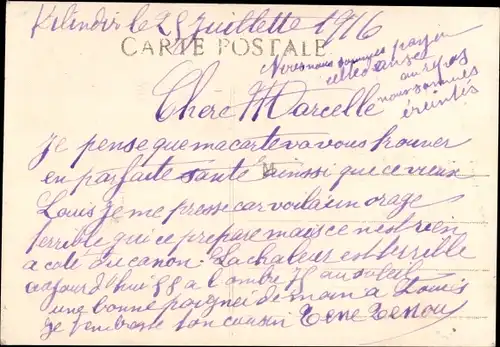 Kilindir le 25 Juillette 1916
CARTE POSTALE
nous sommes
au repos
nous sommes
éreintés
Chère Marcelle
Je pense que ma carte va vous trouver
en parfaite santé M ainssi que ce vieux
Louis je me presse car voila un orage
terrible qui ce prépare mais ce n'est rien
a coté du canon. La chaleur est terrible
aujourd'hui 55 a l'ombre 75 au soleil
une bonne poignée de main a Louis
Je t'embrasse ton cousin